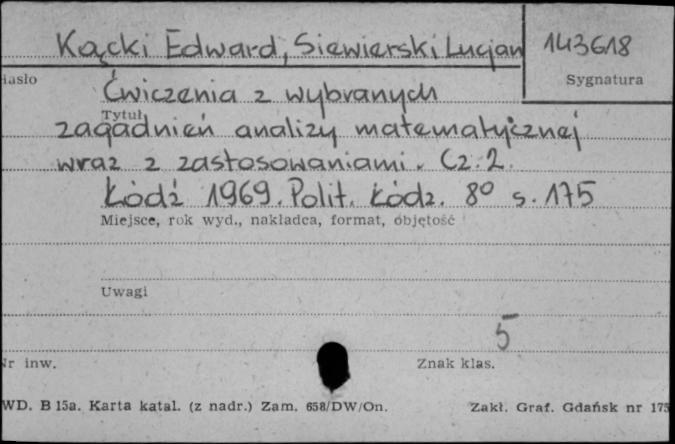 Kącki Edward, Siewierski Lucjan 143618
Hasło Sygnatura
Ćwiczenia z wybranych
Tytuł
zagadnień analizy matematycznej
wraz z zastosowaniami. Cz. 2.
Łódź 1969. Polit. Łódz. 8° s. 175
Miejsce, rok wyd., nakładca, format, objętość
Uwagi
5
Nr inw. Znak klas.
WD. B 15a. Karta katal. (z nadr.) Zam. 658/DW/On. Zakł. Graf. Gdańsk nr 175